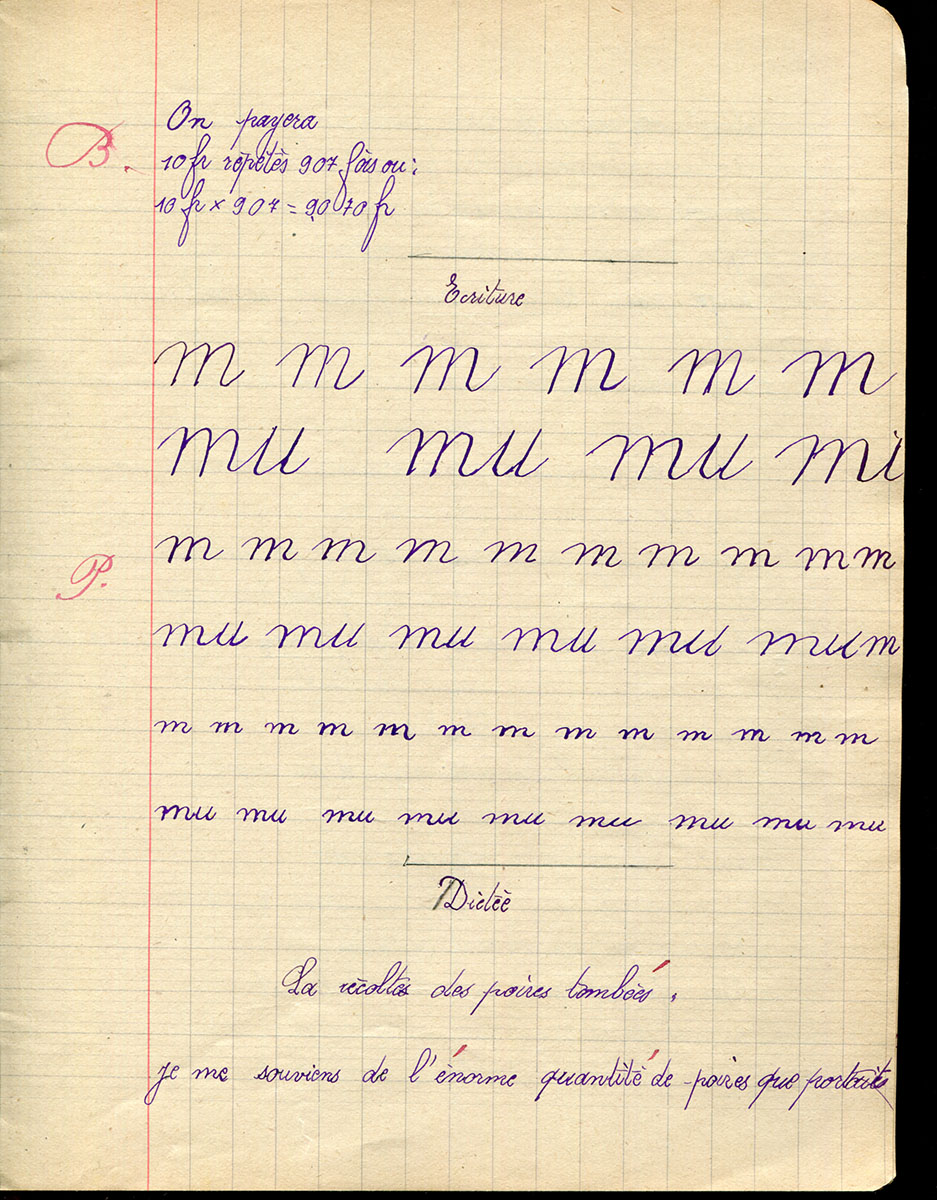 On payera
B.
10 fr répétés 907 fois ou :
10 fr × 907 = 9070 fr
Ecriture
m m m m m m
mu mu mu mi
P.
m m m m m m m m m m
mu mu mu mu mu mu m
m m m m m m m m m m m m m
mu mu mu mu mu mu mu mu mu
Dictèe
La rècoltes des poires tombées.
je me souviens de l'énorme quantité de poires que portait